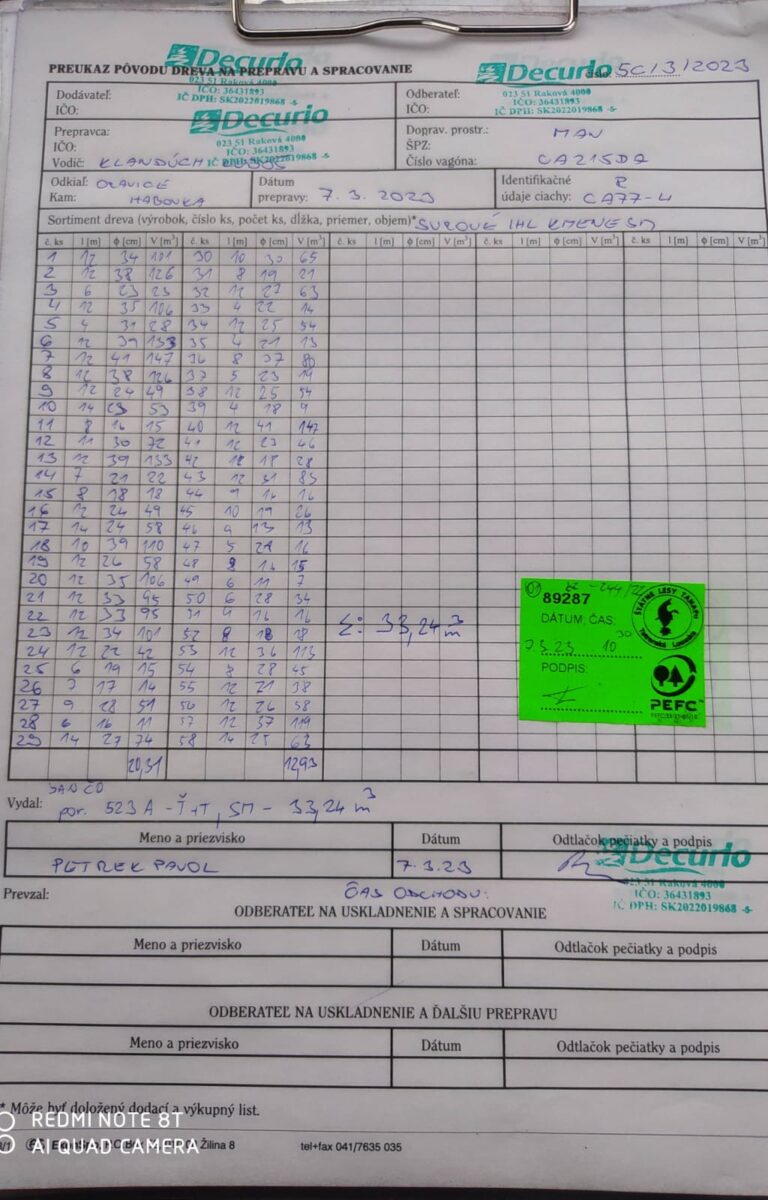 Decurio
PREUKAZ PÔVODU DREVA NA PREPRAVU A SPRACOVANIE
023 51 Raková 4000
IČO: 36431893
IČ DPH: SK2022019868 -5-
Decurio
Číslo: 5C/3/2023
023 51 Raková 4000
IČO: 36431893
IČ DPH: SK2022019868 -5-
Dodávateľ:
IČO:
Odberateľ:
IČO:
Decurio
023 51 Raková 4000
IČO: 36431893
IČ DPH: SK2022019868 -5-
Prepravca:
IČO:
Vodič: KLANDÚCH
Doprav. prostr.: MAN
ŠPZ:
Číslo vagóna: CA215DA
Odkiaľ: ORAVICE
Kam: HABOVKA
Dátum
prepravy: 7. 3. 2023
Identifikačné
údaje ciachy: CA77-4
Sortiment dreva (výrobok, číslo ks, počet ks, dĺžka, priemer, objem)* SUROVÉ IHL KMENE SM
č. ks l [m] ϕ [cm] V [m³] č. ks l [m] ϕ [cm] V [m³] č. ks l [m] ϕ [cm] V [m³] č. ks l [m] ϕ [cm] V [m³] č. ks l [m] ϕ [cm] V [m³]
1 12 34 101 30 10 30 65
2 12 38 126 31 8 19 21
3 6 23 25 32 12 27 63
4 12 35 106 33 4 22 14
5 4 31 28 34 12 25 54
6 12 39 133 35 4 21 13
7 12 41 147 36 8 37 80
8 12 38 126 37 5 23 19
9 12 24 49 38 12 25 54
10 14 23 53 39 4 18 9
11 8 16 15 40 12 41 147
12 11 30 72 41 12 23 46
13 12 39 133 42 12 18 28
14 7 21 22 43 12 31 85
15 8 18 18 44 9 16 16
16 12 24 49 45 10 19 26
17 14 24 58 46 9 13 13
18 10 39 110 47 5 21 16
19 12 26 58 48 8 16 15
20 12 35 106 49 6 11 7
21 12 33 95 50 6 28 34
22 12 33 95 51 9 16 16
23 12 34 101 52 8 18 18
24 12 22 42 53 12 36 113
25 6 19 15 54 8 28 45
26 7 17 14 55 12 21 38
27 9 28 51 56 12 26 58
28 6 16 11 57 12 37 119
29 14 27 74 58 14 25 63
20,31 12,93
Σ: 33,24 m³
89287
DÁTUM, ČAS,
7.3.23 10 30
PODPIS:
ŠTÁTNE LESY TANAPU
Tatranská Lomnica
PEFC™
JANČO
Vydal: por. 523 A - Ť+T, SM - 33,24 m³
Meno a priezvisko Dátum Odtlačok pečiatky a podpis
PETREK PAVOL 7.3.23
Decurio
023 51 Raková 4000
IČO: 36431893
IČ DPH: SK2022019868 -5-
Prevzal: ČAS ODCHODU:
ODBERATEĽ NA USKLADNENIE A SPRACOVANIE
Meno a priezvisko Dátum Odtlačok pečiatky a podpis
ODBERATEĽ NA USKLADNENIE A ĎALŠIU PREPRAVU
Meno a priezvisko Dátum Odtlačok pečiatky a podpis
* Môže byť doložený dodací a výkupný list.
REDMI NOTE 8T
AI QUAD CAMERA
Žilina 8 tel+fax 041/7635 035